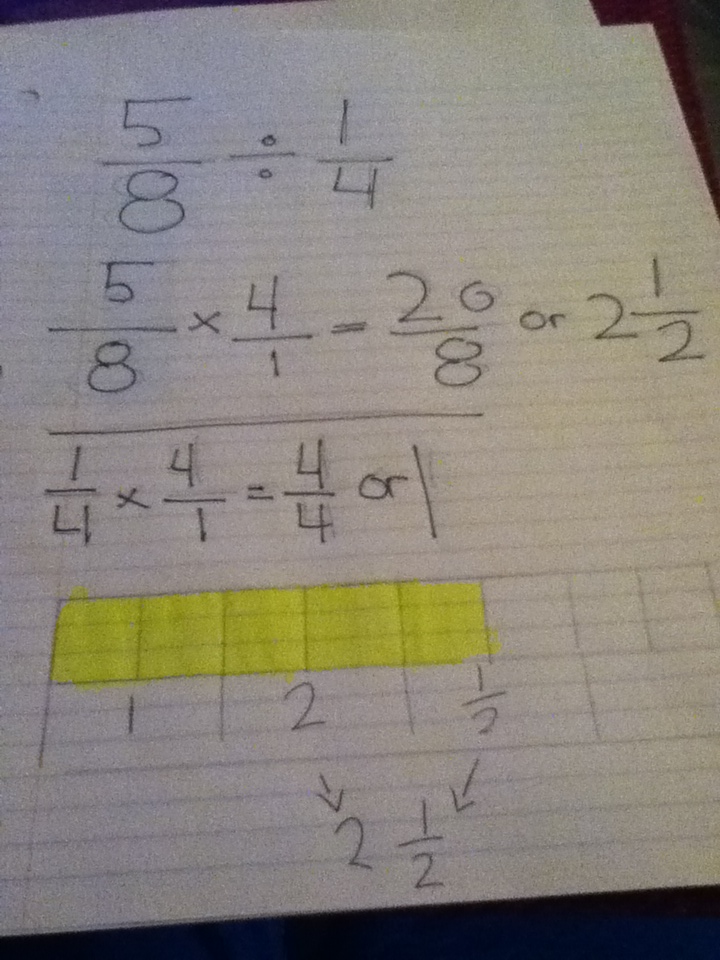 5/8 ÷ 1/4
5/8 × 4/1 = 20/8 or 2 1/2
1/4 × 4/1 = 4/4 or 1
1 2 1/2
2 1/2